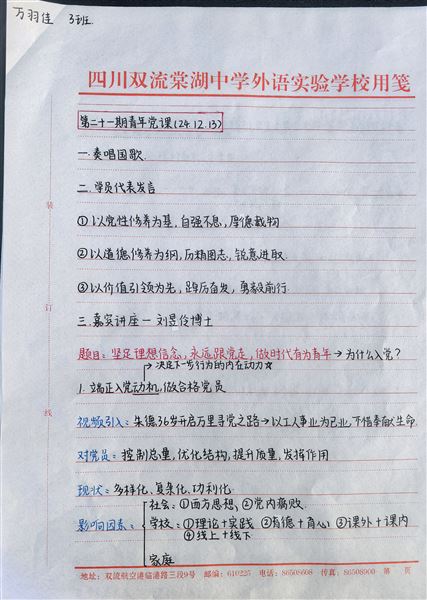 万羽佳 3班
四川双流棠湖中学外语实验学校用笺
第二十一期青年党课(24.12.13)
一.奏唱国歌.
二.学员代表发言
①以党性修养为基,自强不息,厚德载物
②以道德修养为纲,历精图志,锐意进取.
装
③以价值引领为先,踔厉奋发,勇毅前行.
订
三.嘉宾讲座—刘昱伶博士
题目:坚定理想信念,永远跟党走,做时代有为青年→为什么入党?
→决定下一步行为的内在动力☆
1.端正入党动机,做合格党员
线
视频引入:朱德36岁开启万里寻党之路→以工人事业为己业,不惜奉献生命.
对党员:控制总量,优化结构,提升质量,发挥作用
现状:多样化、复杂化、功利化.
影响因素:
社会:①西方思想,②党内腐败.
学校:①理论+实践 ②育德+育心 ③课外+课内
④线上+线下
家庭
地址:双流航空港临港路三段9号 邮编:610225 电话:86508608 传真:86508900 第 页